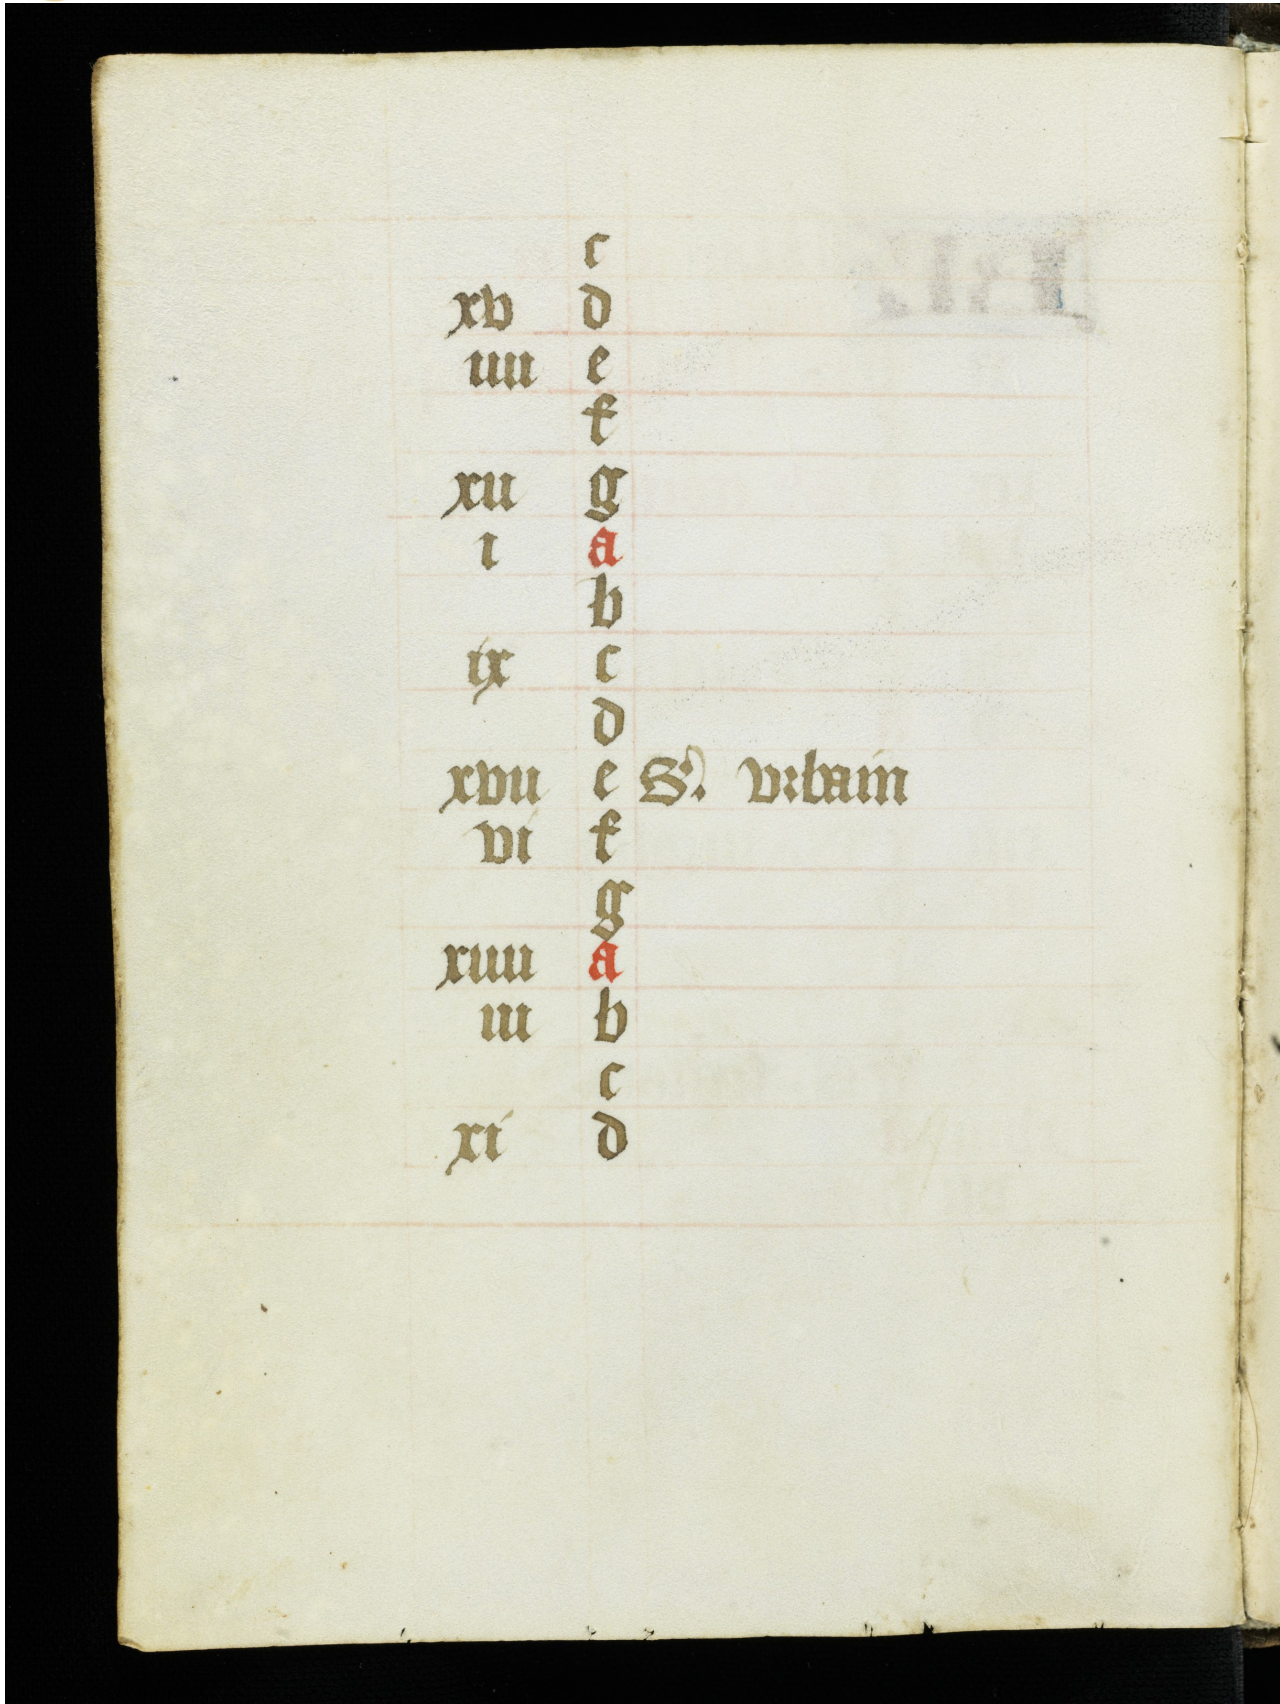 c
xv d
iiii e
f
xii g
i a
b
ix c
d
xvii e S'. vrbain
vi f
g
xiiii a
iii b
c
xi d